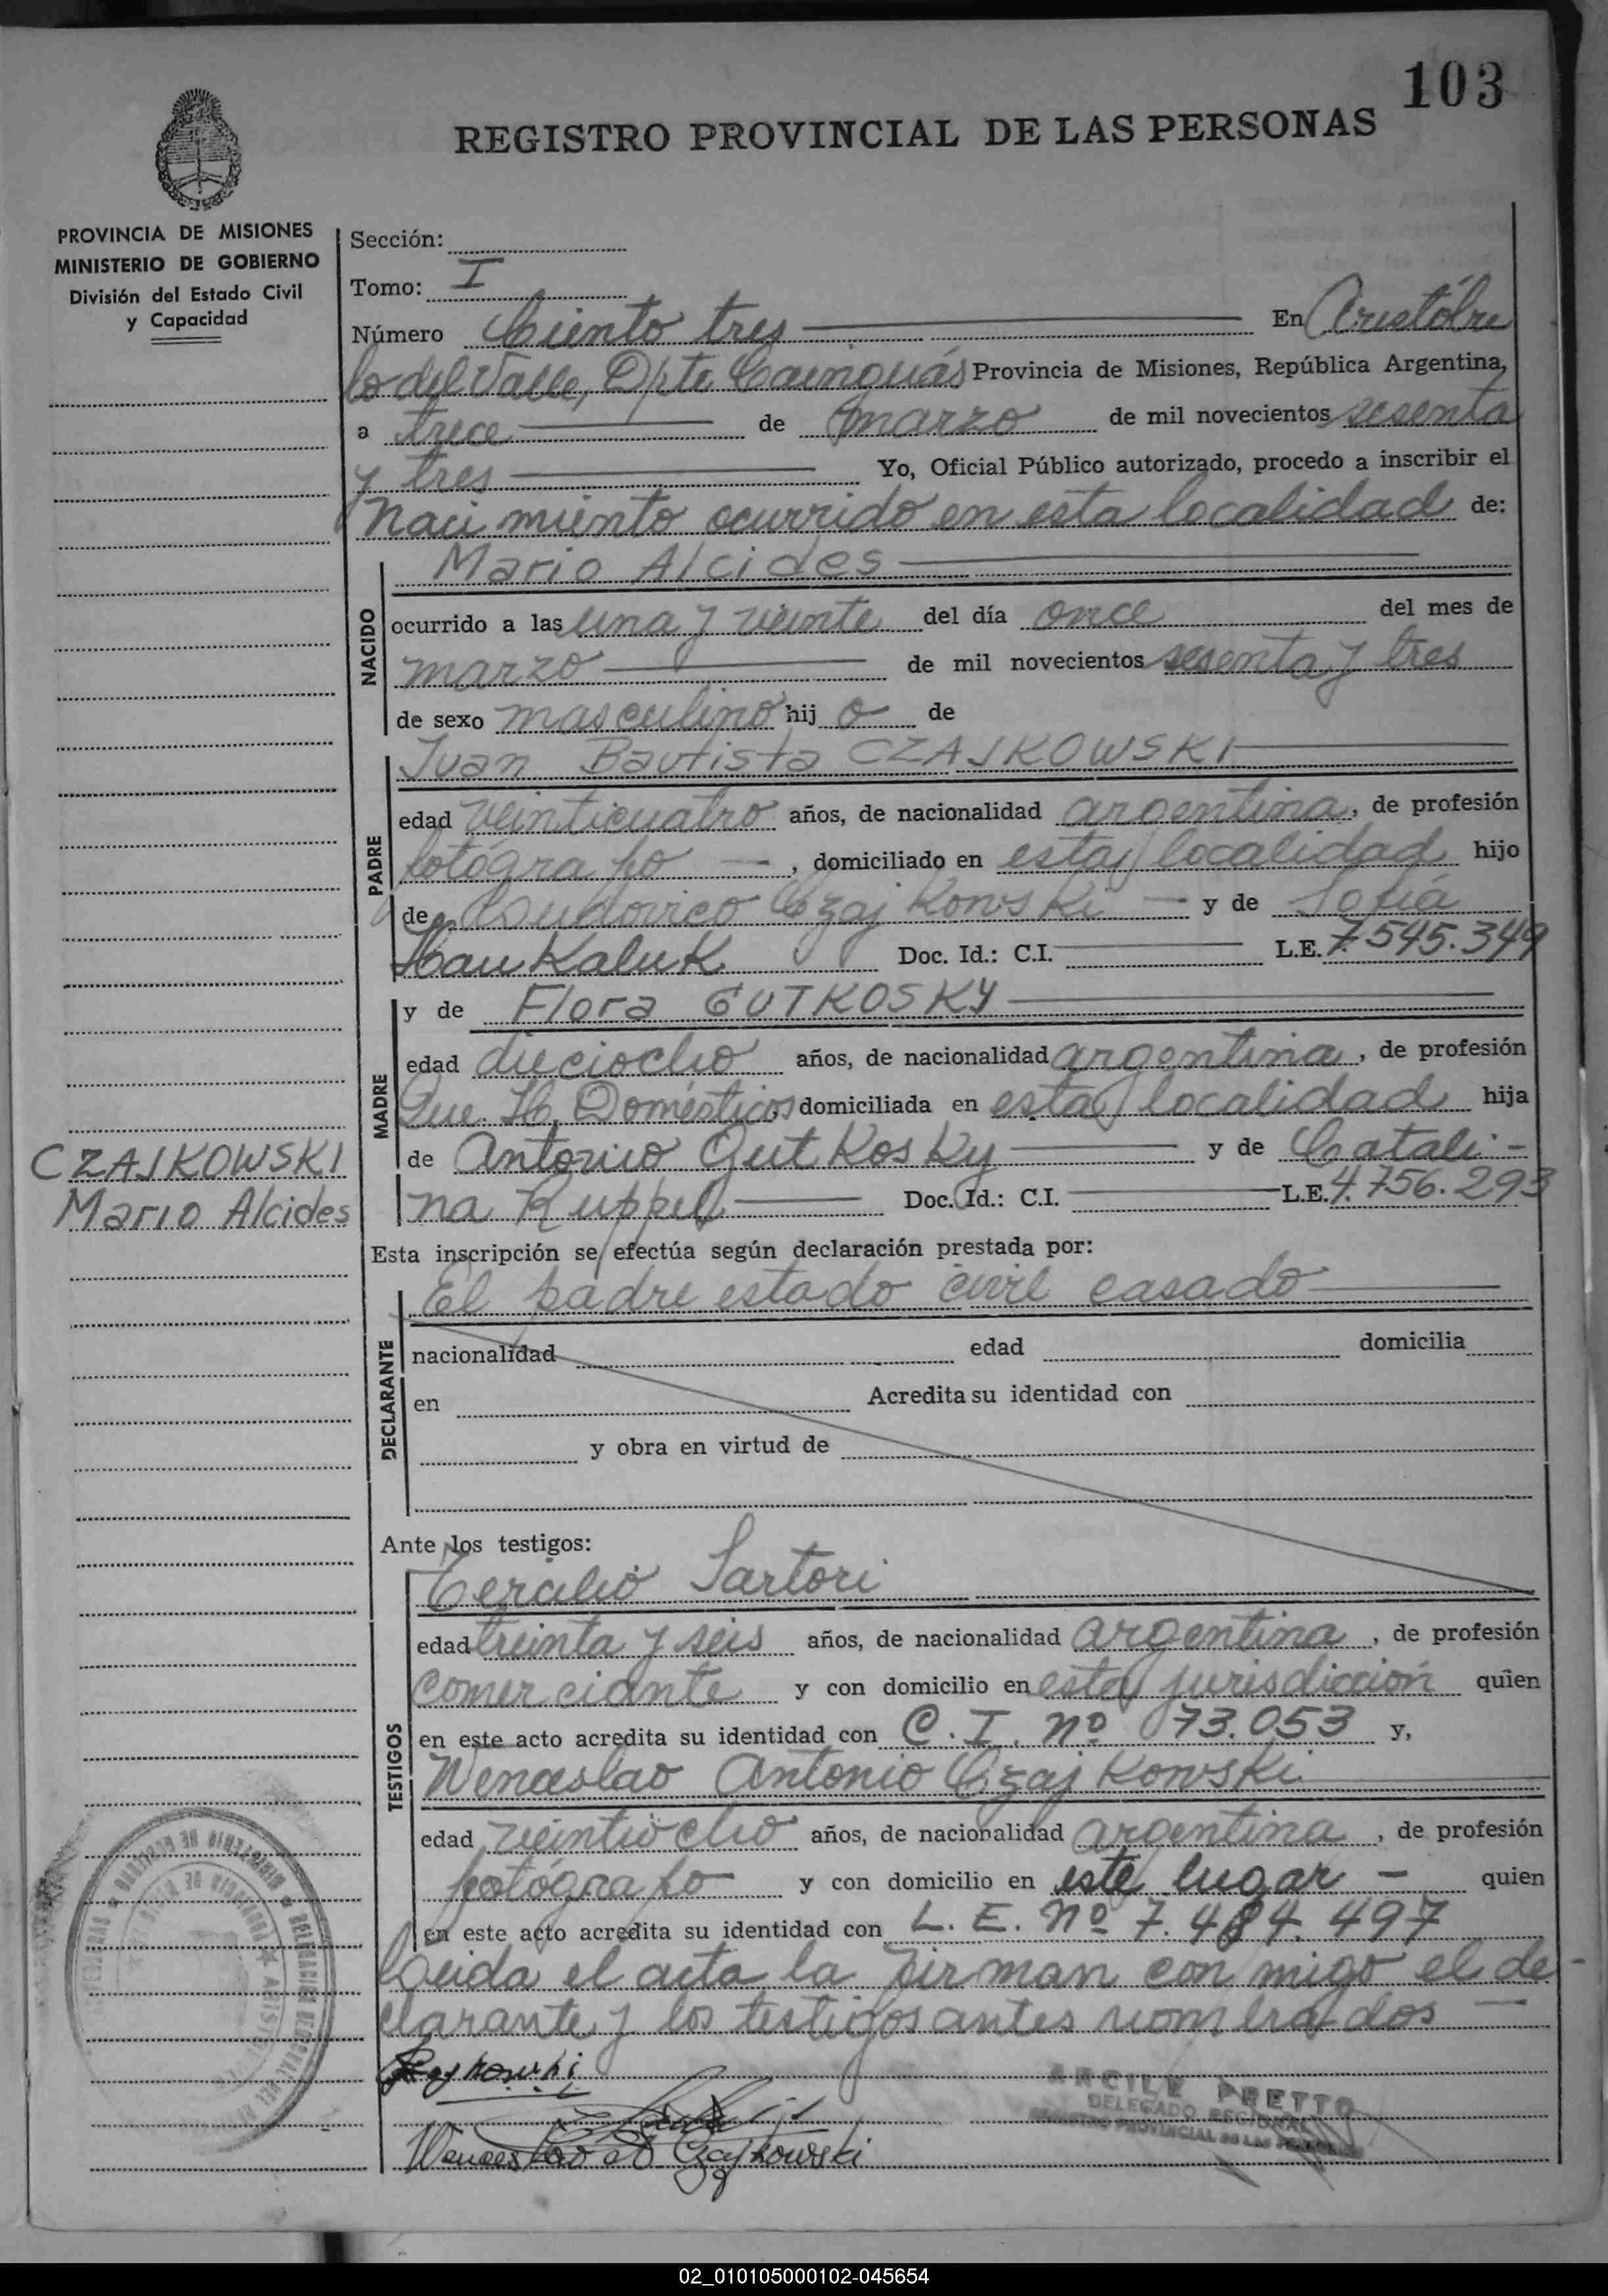 103
REGISTRO PROVINCIAL DE LAS PERSONAS
PROVINCIA DE MISIONES
MINISTERIO DE GOBIERNO
División del Estado Civil
y Capacidad
Sección:
Tomo: I
Número Ciento tres En Aristóbu
lo del Valle, Dpto Cainguás Provincia de Misiones, República Argentina,
a trece de marzo de mil novecientos sesenta
y tres Yo, Oficial Público autorizado, procedo a inscribir el
Nacimiento ocurrido en esta localidad de:
NACIDO
Mario Alcides
ocurrido a las una y veinte del día once del mes de
marzo de mil novecientos sesenta y tres
de sexo masculino hij o de
PADRE
Juan Bautista CZAJKOWSKI
edad veinticuatro años, de nacionalidad argentina, de profesión
fotógrafo, domiciliado en esta localidad hijo
de Ludovico Czajkowski y de Sofía
Haukaluk Doc. Id.: C.I. L.E. 7.545.349
MADRE
y de Flora GUTKOSKY
edad dieciocho años, de nacionalidad argentina, de profesión
Que. H. Domésticos, domiciliada en esta localidad hija
de Antonio Gutkosky y de Catali-
na Ruppel Doc. Id.: C.I. L.E. 4.756.293
CZAJKOWSKI
Mario Alcides
Esta inscripción se efectúa según declaración prestada por:
DECLARANTE
El padre estado civil casado
nacionalidad edad domicilia
en Acredita su identidad con
y obra en virtud de
Ante los testigos:
TESTIGOS
Sartori
edad treinta y seis años, de nacionalidad argentina, de profesión
comerciante y con domicilio en esta jurisdicción quien
en este acto acredita su identidad con C. I. nº 073.053 y,
Wenceslao Antonio Czajkowski
edad veintiocho años, de nacionalidad argentina, de profesión
fotógrafo y con domicilio en este lugar - quien
en este acto acredita su identidad con L. E. nº 7.484.497
Leida el acta la firman con migo el de-
clarante y los testigos antes nombrados
Wenceslao A Czajkowski
ARCILE PRETTO
DELEGADO REGIONAL
REGISTRO PROVINCIAL DE LAS PERSONAS
02_010105000102-045654